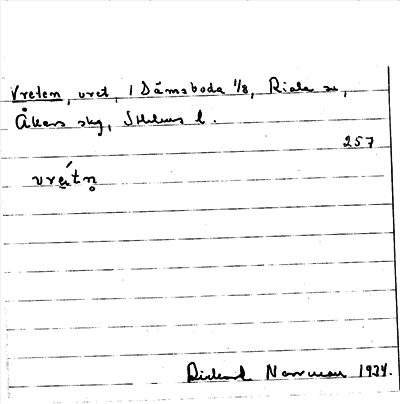 Vreten, vret, 1 Dämsboda 1/8, Riala sn,
Åkers skg, Sthlms l.
257
vreítn̥
Rickard 1934.